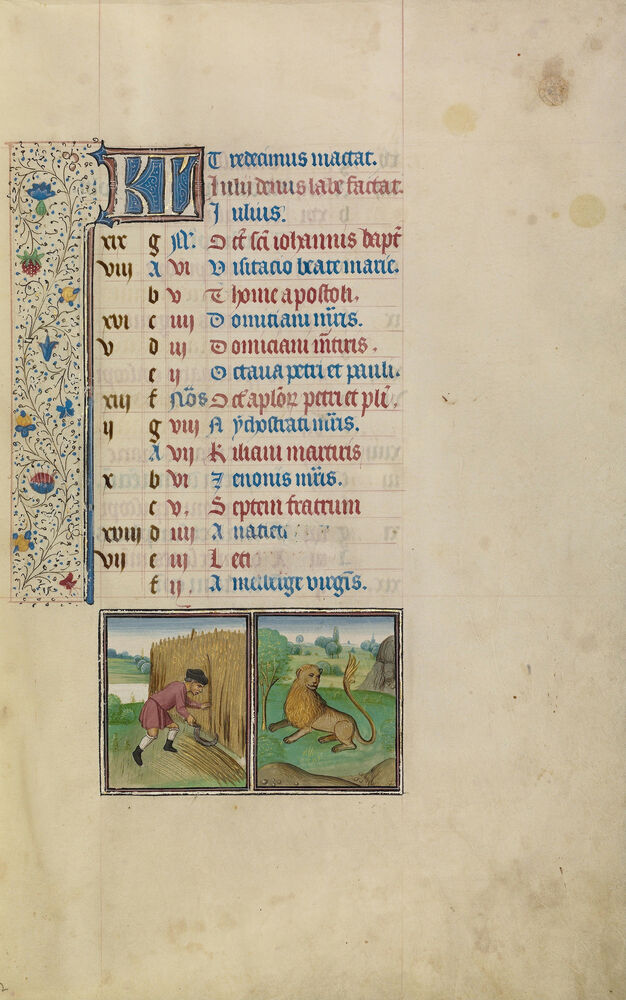 KL Tredecimus mactat.
Iulii denus labe factat.
Iulius.
xix g N. Oct sci iohannis bapt
viii A vi Visitacio beate marie.
b v Thome apostoli.
xvi c iiii Domiciani mris.
v d iii Domiciani mtiris.
e ii Octaua petri et pauli.
xiii f Nōs Oct aploꝝ petri et pli.
ii g viii Nychostrati mris.
A vii Kiliani martiris
x b vi Zenonis mris.
c v. Septem fratrum
xviii d iiii Anacleti
vii e iii Leti
f ii. Amelberge virgis.